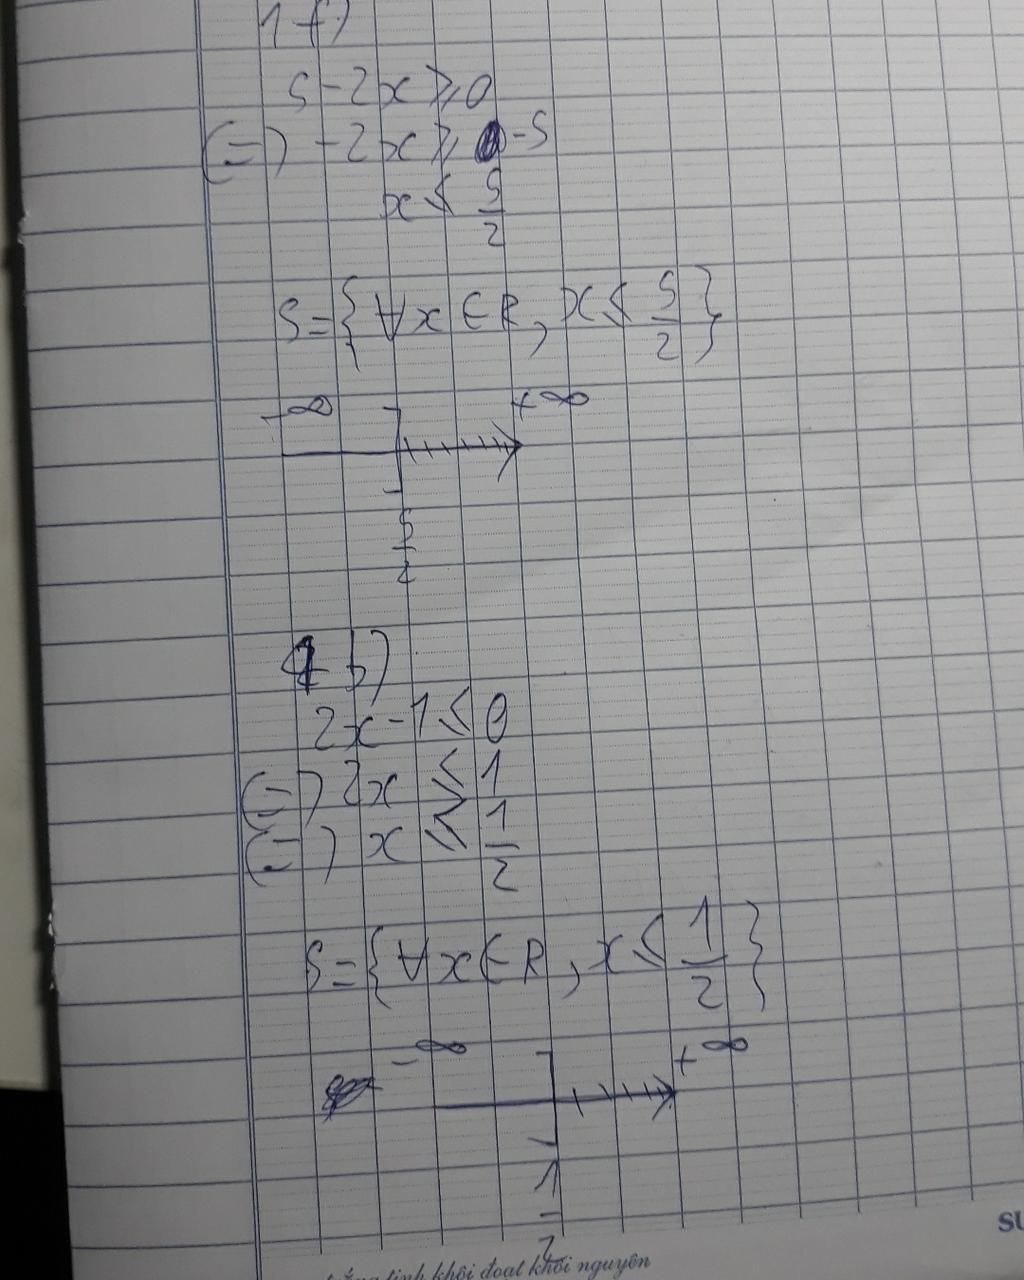 1 f)
5-2x ⩾ 0
(=) -2x ⩾ -5
x ⩽ 5/2
S={∀x∈R, x ⩽ 5/2}
-∞ ] +∞
5/2
1 b)
2x-1 ⩽ 0
(=) 2x ⩽ 1
(=) x ⩽ 1/2
S={∀x∈R, x ⩽ 1/2}
-∞ ] +∞
1/2
SU
tinh khôi đoạt khôi nguyên